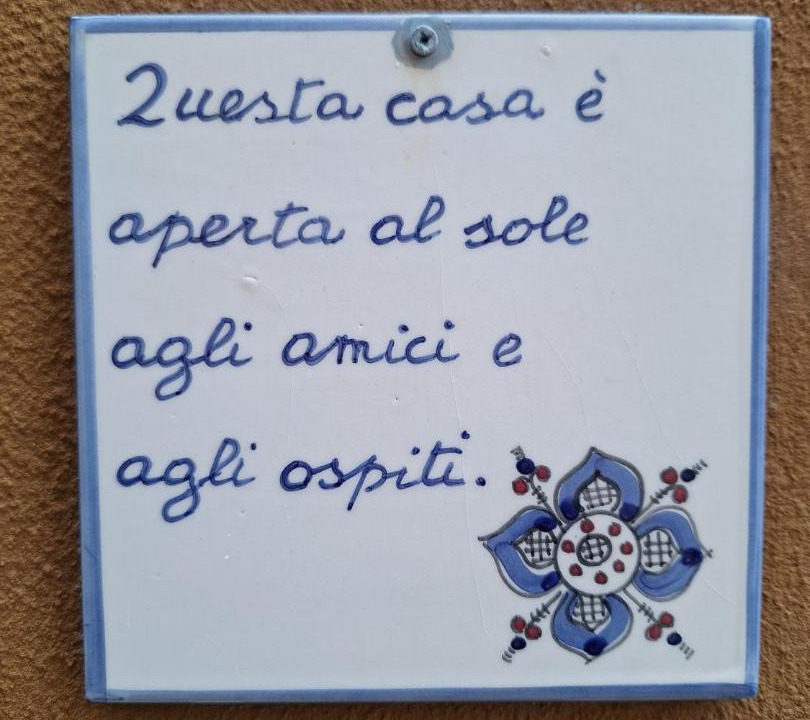 Questa casa è
aperta al sole
agli amici e
agli ospiti.